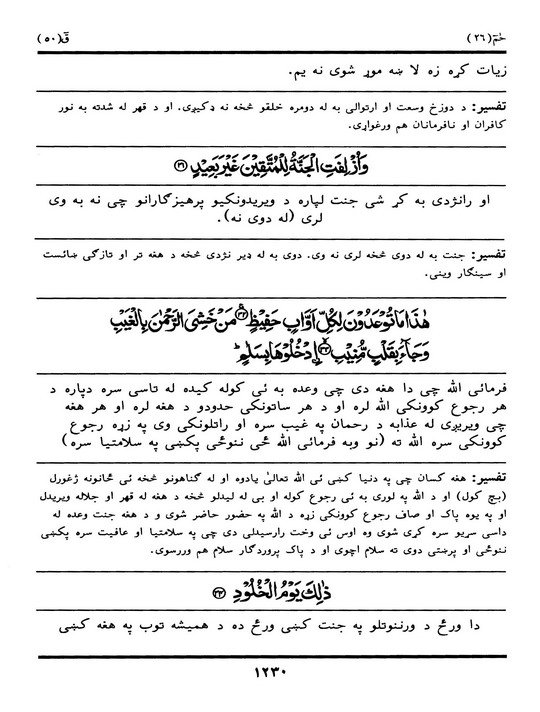 حٰمٓ (٢٦) قٓ (٥٠)
زيات كړه زه لا ښه موړ شوى نه يم.
تفسير: د دوزخ وسعت او ارتوالى به له دومره خلقو څخه نه ډكيږي. او د قهر له شدته به نور
كافران او نافرمانان هم ورغواړي.
وَاُزْلِفَتِ الْجَنَّةُ لِلْمُتَّقِيْنَ غَيْرَ بَعِيْدٍ ﴿٣١﴾
او رانژدى به كړ شى جنت لپاره د ويريدونكيو پرهيزګارانو چى نه به وى
لرى (له دوى نه).
تفسير: جنت به له دوى څخه لرى نه وى. دوى به له ډير نژدى څخه د هغه تر او تازګى ښائست
او سينګار وينى.
هٰذَا مَا تُوْعَدُوْنَ لِكُلِّ اَوَّابٍ حَفِيْظٍ ﴿٣٢﴾ مَنْ خَشِىَ الرَّحْمٰنَ بِالْغَيْبِ
وَجَآءَ بِقَلْبٍ مُّنِيْبٍ ﴿٣٣﴾ اِدْخُلُوْهَا بِسَلٰمٍ ؕ
فرمائى الله چى دا هغه دى چى وعده به ئى كوله كيده له تاسى سره دپاره د
هر رجوع كوونكى الله لره او د هر ساتونكى حدودو د هغه لره او هر هغه
چى ويريږي له عذابه د رحمان په غيب سره او راتلونكى وى په زړه رجوع
كوونكى سره الله ته (نو وبه فرمائى الله ځى ننوځى پكښى په سلامتيا سره)
تفسير: هغه كسان چى په دنيا كښى ئى الله تعالىٰ يادوه او له ګناهونو څخه ئى ځانونه ژغورل
(بچ كول) او د الله په لورى به ئى رجوع كوله او بى له ليدلو څخه د هغه له قهر او جلاله ويريدل
او په يوه پاك او صاف رجوع كوونكى زړه د الله په حضور حاضر شوى و د هغه جنت وعده له
داسى سړيو سره كړى شوى وه اوس ئى وخت رارسيدلى دى چى په سلامتيا او عافيت سره پكښى
ننوځى او پرښتى دوى ته سلام اچوى او د پاك پروردګار سلام هم وررسوى.
ذٰلِكَ يَوْمُ الْخُلُوْدِ ﴿٣٤﴾
دا ورځ د ورننوتلو په جنت كښى ورځ ده د هميشه توب په هغه كښى
١٢٣٠